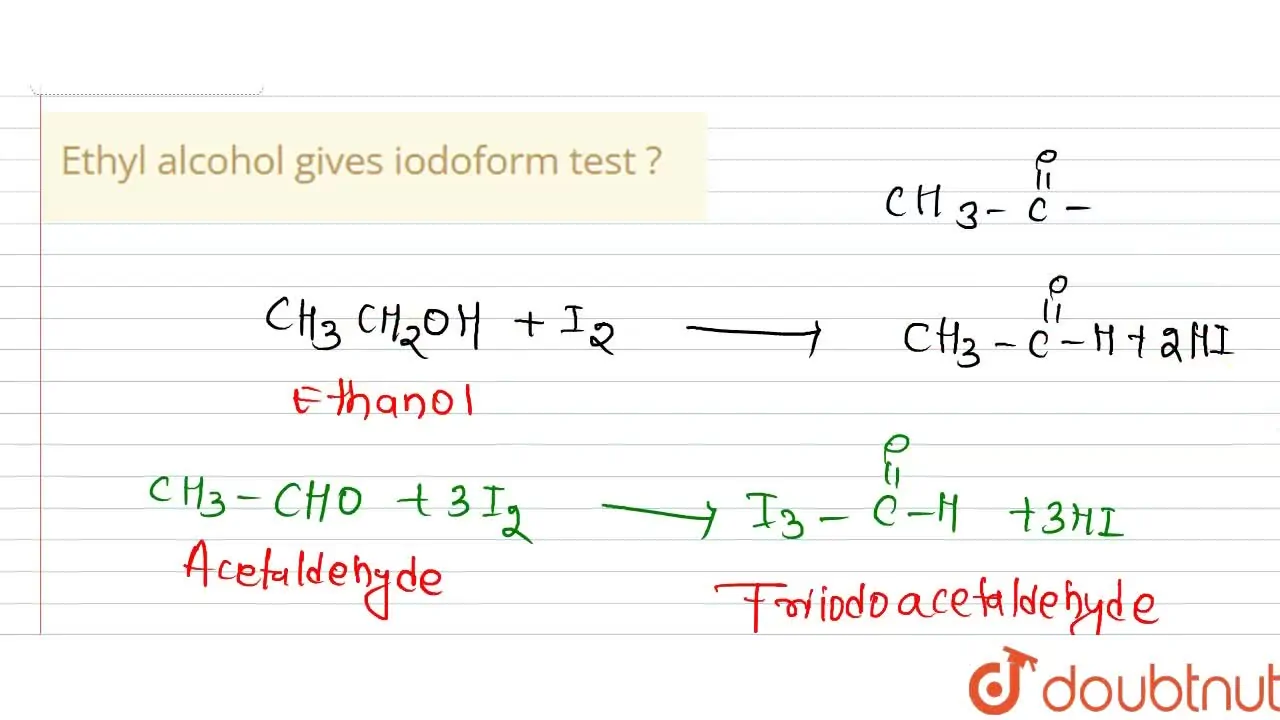 Ethyl alcohol gives iodoform test ?
O
CH3 - C -
O
CH3 CH2OH + I2 ⟶ CH3 - C - H + 2HI
Ethanol
O
CH3 - CHO + 3I2 ⟶ I3 - C - H + 3HI
Acetaldehyde
Triiodoacetaldehyde
doubtnut